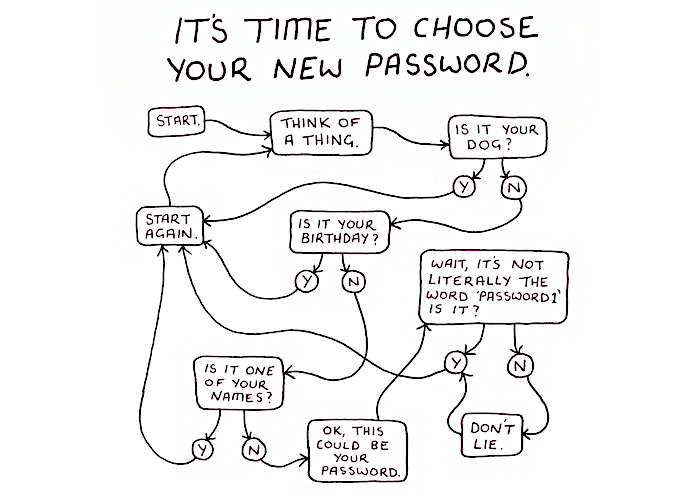 IT'S TIME TO CHOOSE
YOUR NEW PASSWORD.
START.
THINK OF
A THING.
IS IT YOUR
DOG?
Y
N
START
AGAIN.
IS IT YOUR
BIRTHDAY?
Y
N
WAIT, IT'S NOT
LITERALLY THE
WORD 'PASSWORD1'
IS IT?
Y
N
IS IT ONE
OF YOUR
NAMES?
Y
N
OK, THIS
COULD BE
YOUR
PASSWORD.
DON'T
LIE.